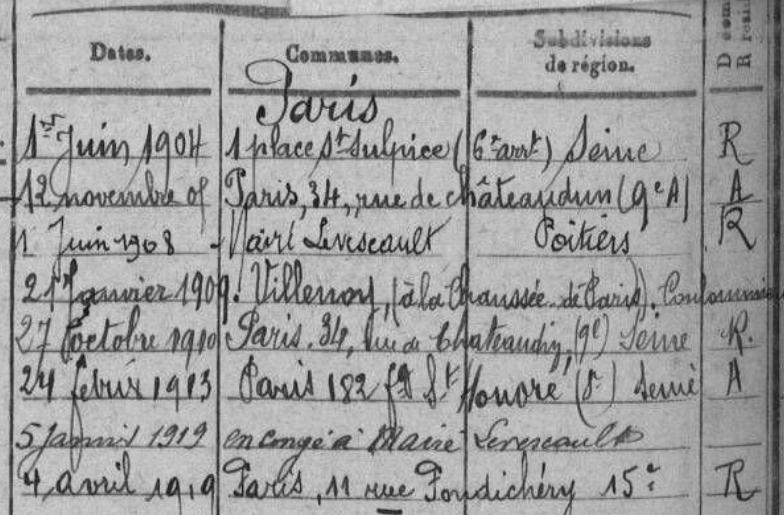 Dates. Communes. Subdivisions de région. D R
Paris
1er Juin 1904 1 place St Sulpice (6e arrt) Seine R
12 novembre 05 Paris, 34, rue de châteaudun (9e A) A
1 Juin 1908 Mairé Levescault Poitiers R
21 Janvier 1909. Villenoy, (à la Chaussée de Paris). Coulommiers
27 octobre 1910 Paris. 34, rue de Chateaudun, (9e) Seine R.
24 février 1913 Paris 182 fg St Honoré (8e) Seine A
5 Janvier 1919 en congé à Mairé Levescault
4, avril 1919 Paris, 11 rue Pondichéry 15e R